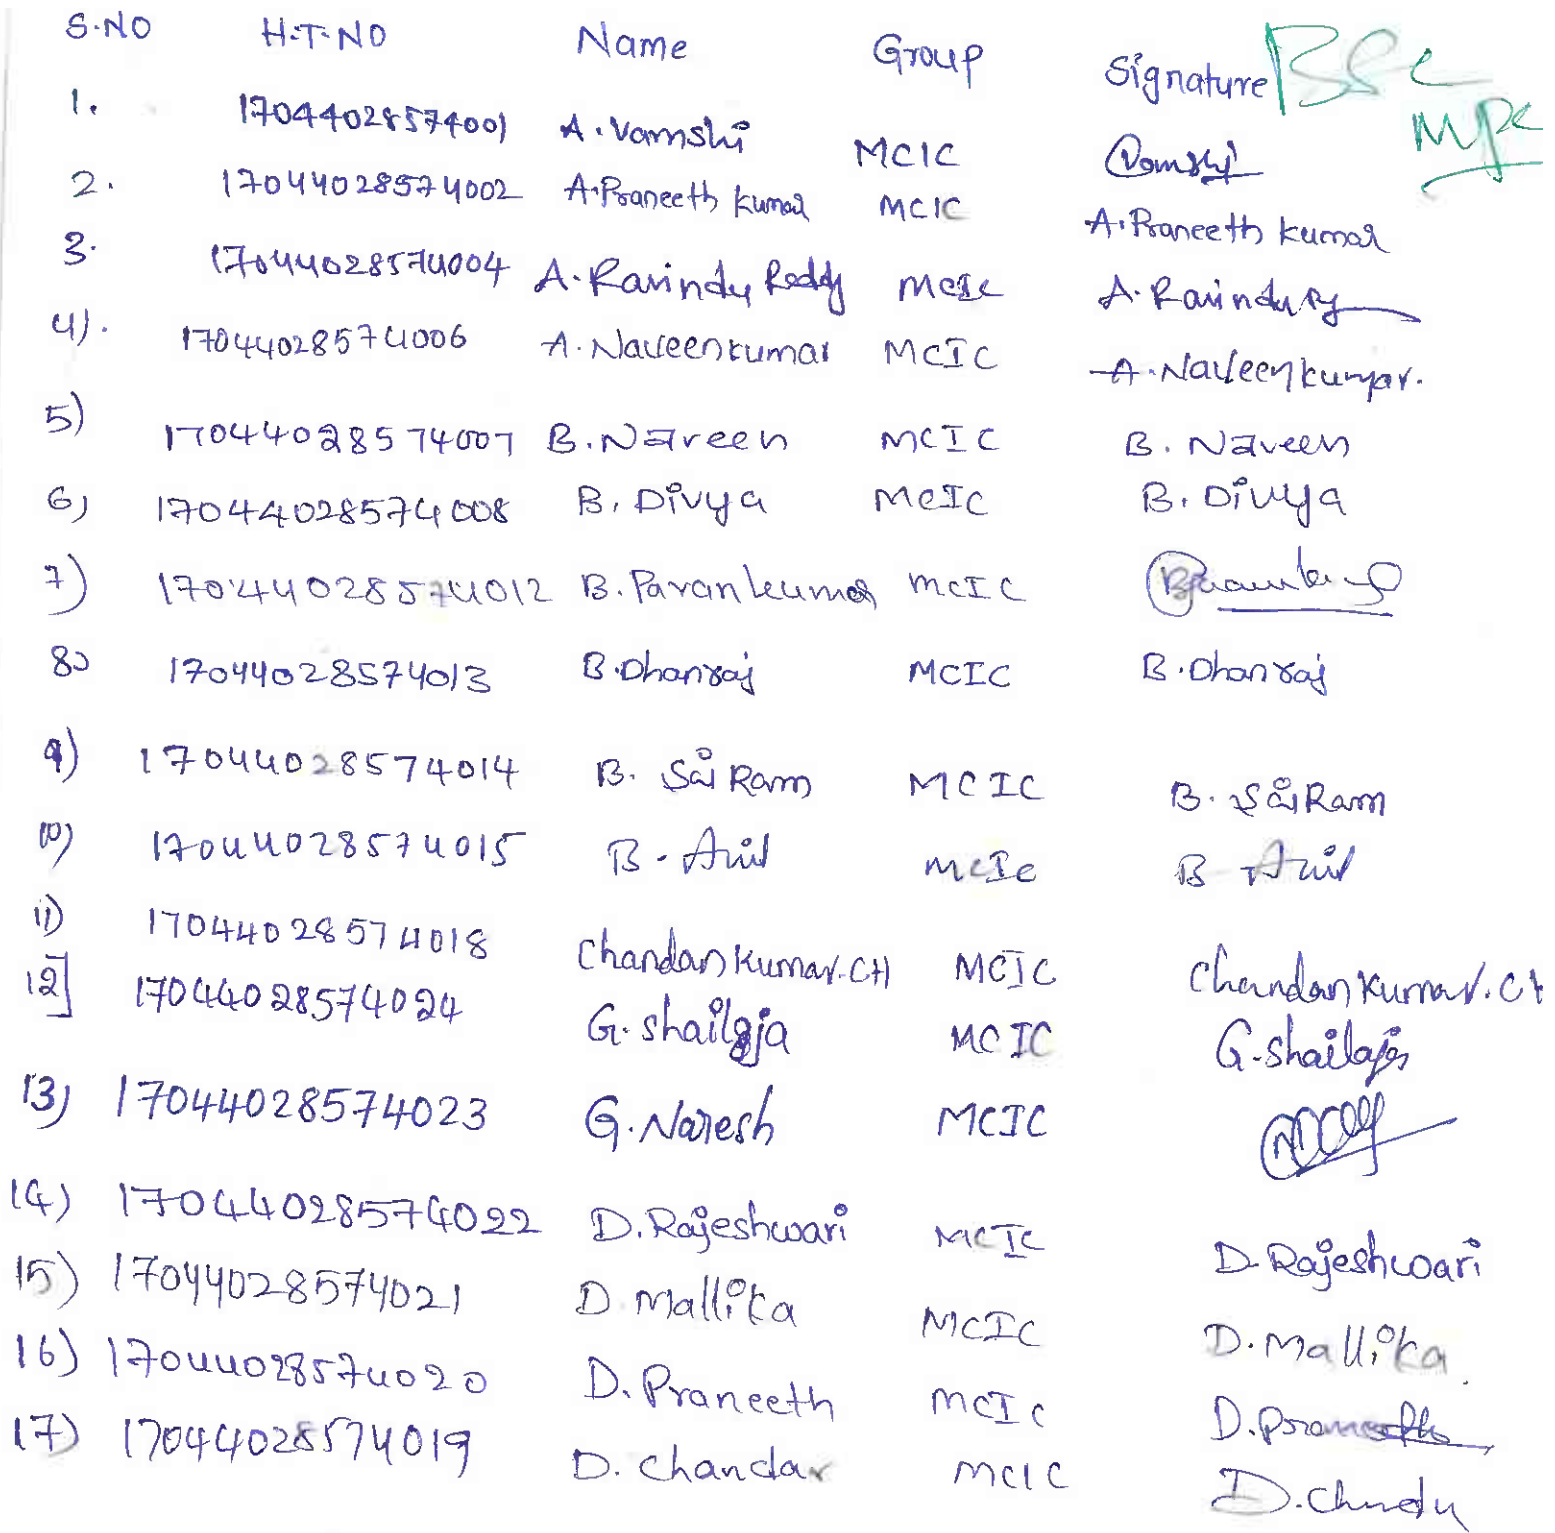 S.NO H.T.NO Name Group Signature BSc
MPC
1. 17044028574001 A.Vamshi MCIC Vamshi
2. 17044028574002 A.Praneeth kumar MCIC A.Praneeth kumar
3. 17044028574004 A.Ravindu Reddy MCIC A.Ravindu
4). 17044028574006 A.Naveenkumar MCIC A.Naveenkumar.
5) 17044028574007 B.Naveen MCIC B.Naveen
6) 17044028574008 B.Divya MCIC B.Divya
7) 17044028574012 B.Pavankumar MCIC
8) 17044028574013 B.Dhanraj MCIC B.Dhanraj
9) 17044028574014 B. Sai Ram MCIC B. Sai Ram
10) 17044028574015 B. Anil MCIC B Anil
11) 17044028574018 Chandan Kumar.CH MCIC Chandan Kumar.CH
12] 17044028574024 G.shailaja MCIC G.shailaja
13) 17044028574023 G.Naresh MCIC
14) 17044028574022 D.Rajeshwari MCIC D.Rajeshwari
15) 17044028574021 D.Mallika MCIC D.Mallika.
16) 17044028574020 D.Praneeth MCIC D.Praneeth
17) 17044028574019 D.Chandar MCIC D.Chandu